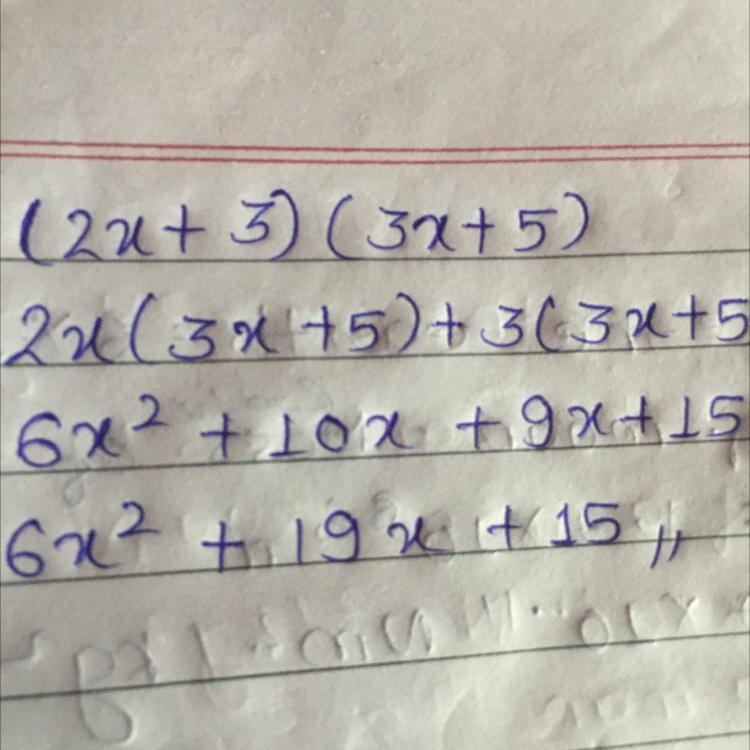 (2x + 3) (3x + 5)
2x(3x + 5) + 3(3x + 5
6x² + 10x + 9x + 15
6x² + 19x + 15 ,,